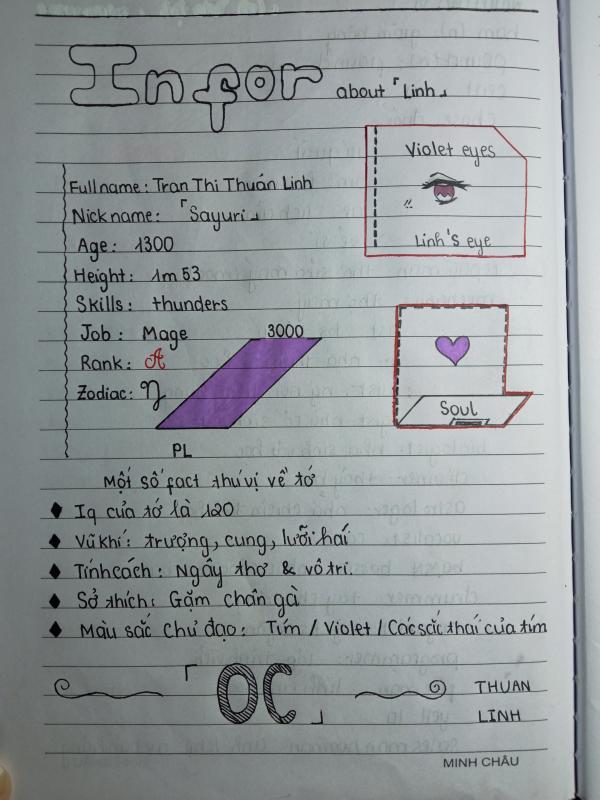 Infor about「Linh」
Violet eyes
Linh's eye
Full name: Tran Thi Thuán Linh
Nick name: 「Sayuri」
Age: 1300
Height: 1m53
Skills: thunders
Job: Mage
Rank: A
Zodiac: ♑
3000
PL
Soul
Một số fact thú vị về tớ
♦ Iq của tớ là 120
♦ Vũ khí: trượng, cung, lưỡi hái
♦ Tính cách: Ngây thơ & vô tri.
♦ Sở thích: Gặm chân gà
♦ Màu sắc chủ đạo: Tím / Violet / Các sắc thái của tím
「OC」
THUAN
LINH
MINH CHÂU